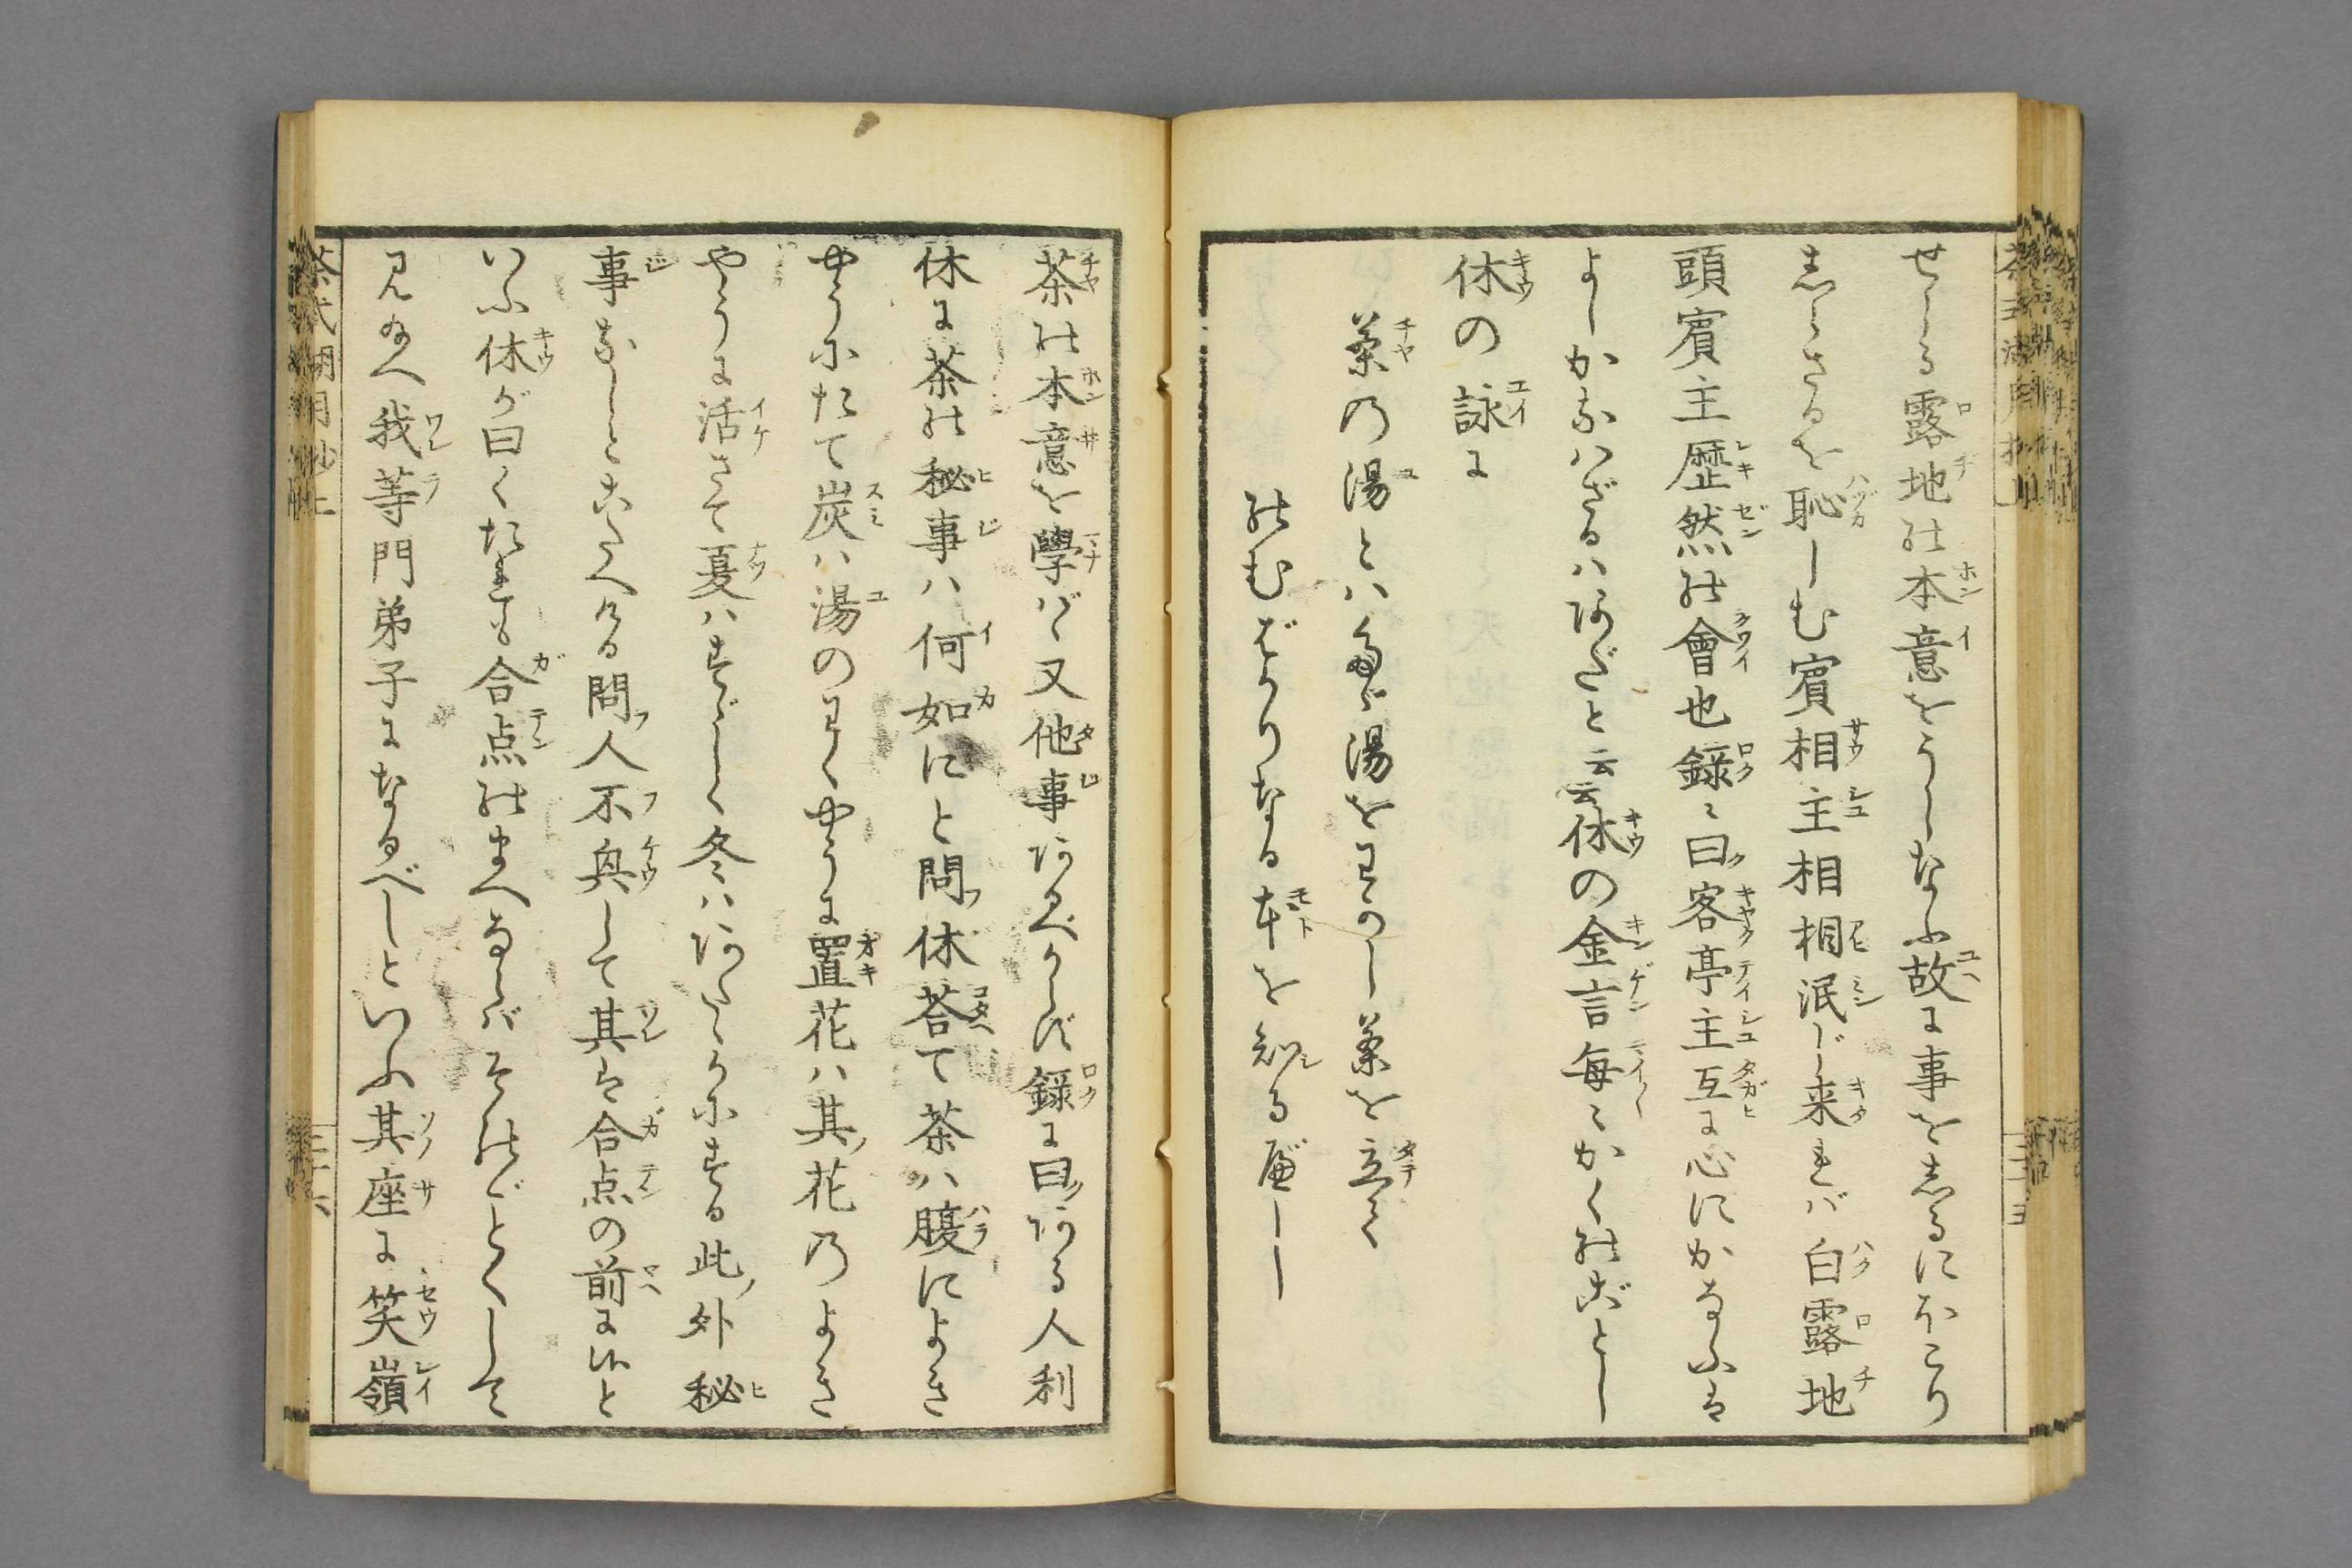 せしる露地の本意をうしなふ故に事をしるにほこり
しらさるを恥しむ賓相主相相泯じ来れバ白露地
頭賓主歴然の會也録ニ曰客亭主互に心にかなふは
よしかなハざるハあしと云云休の金言毎ニかくのごとし
休の詠に
茶の湯とハたゞ湯をわかし茶を立て
のむばかりなる本を知るべし
茶の本意を學バ又他事あるべからず録に曰ある人利
休に茶の秘事ハ何如にと問休荅て茶ハ腹によき
やうにたて炭ハ湯のわくやうに置花ハ其花のよき
やうに活さて夏ハすゞしく冬ハあたゝかにする此外秘
事なしとこたへける問人不興して其は合点の前に候と
いふ休が曰くたれも合点のまへならバそのごとくして
見給へ我等門弟子になるべしといふ其座に笑嶺
茶式湖月抄上
二十六